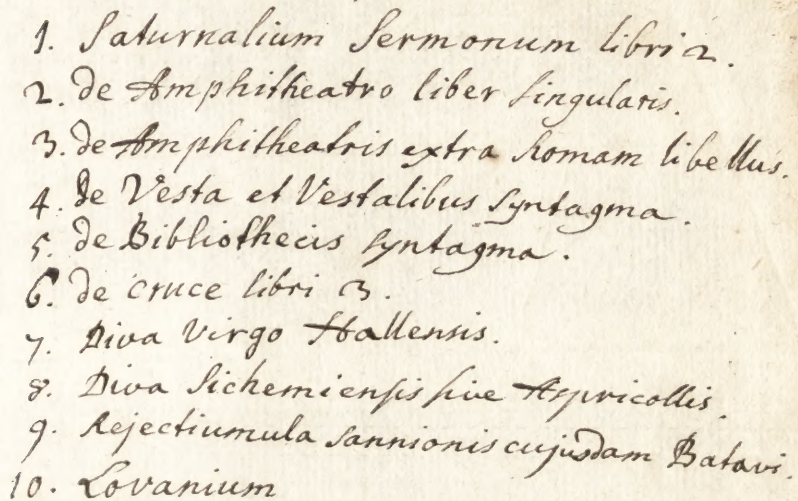 1. Saturnalium Sermonum libri 2.
2. de Amphitheatro liber singularis.
3. de Amphitheatris extra Romam libellus.
4. de Vesta et Vestalibus Syntagma.
5. de Bibliothecis syntagma.
6. de cruce libri 3.
7. Diva Virgo Hallensis.
8. Diva Sichemiensis sive Aspricollis.
9. Rejectiumula sannionis cujusdam Batavi.
10. Lovanium